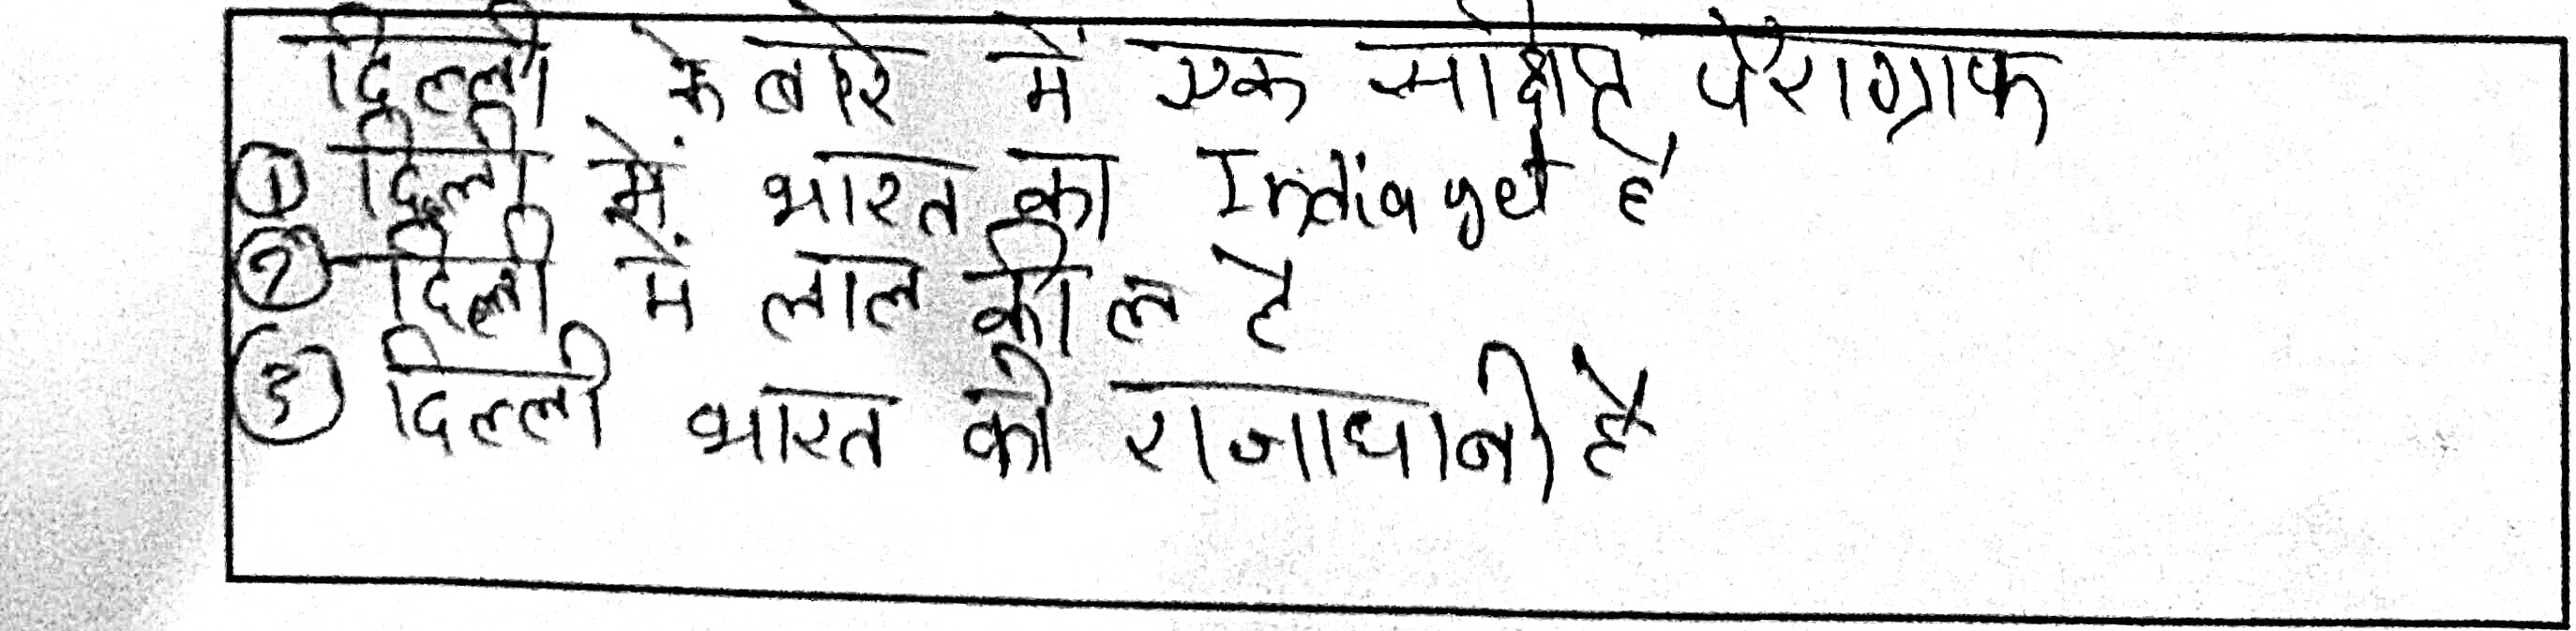 दिल्ली के बारे में एक साक्षिप्त पैराग्राफ
① दिल्ली में भारत का India gate है
② दिल्ली में लाल कील है
③ दिल्ली भारत की राजाधानी है